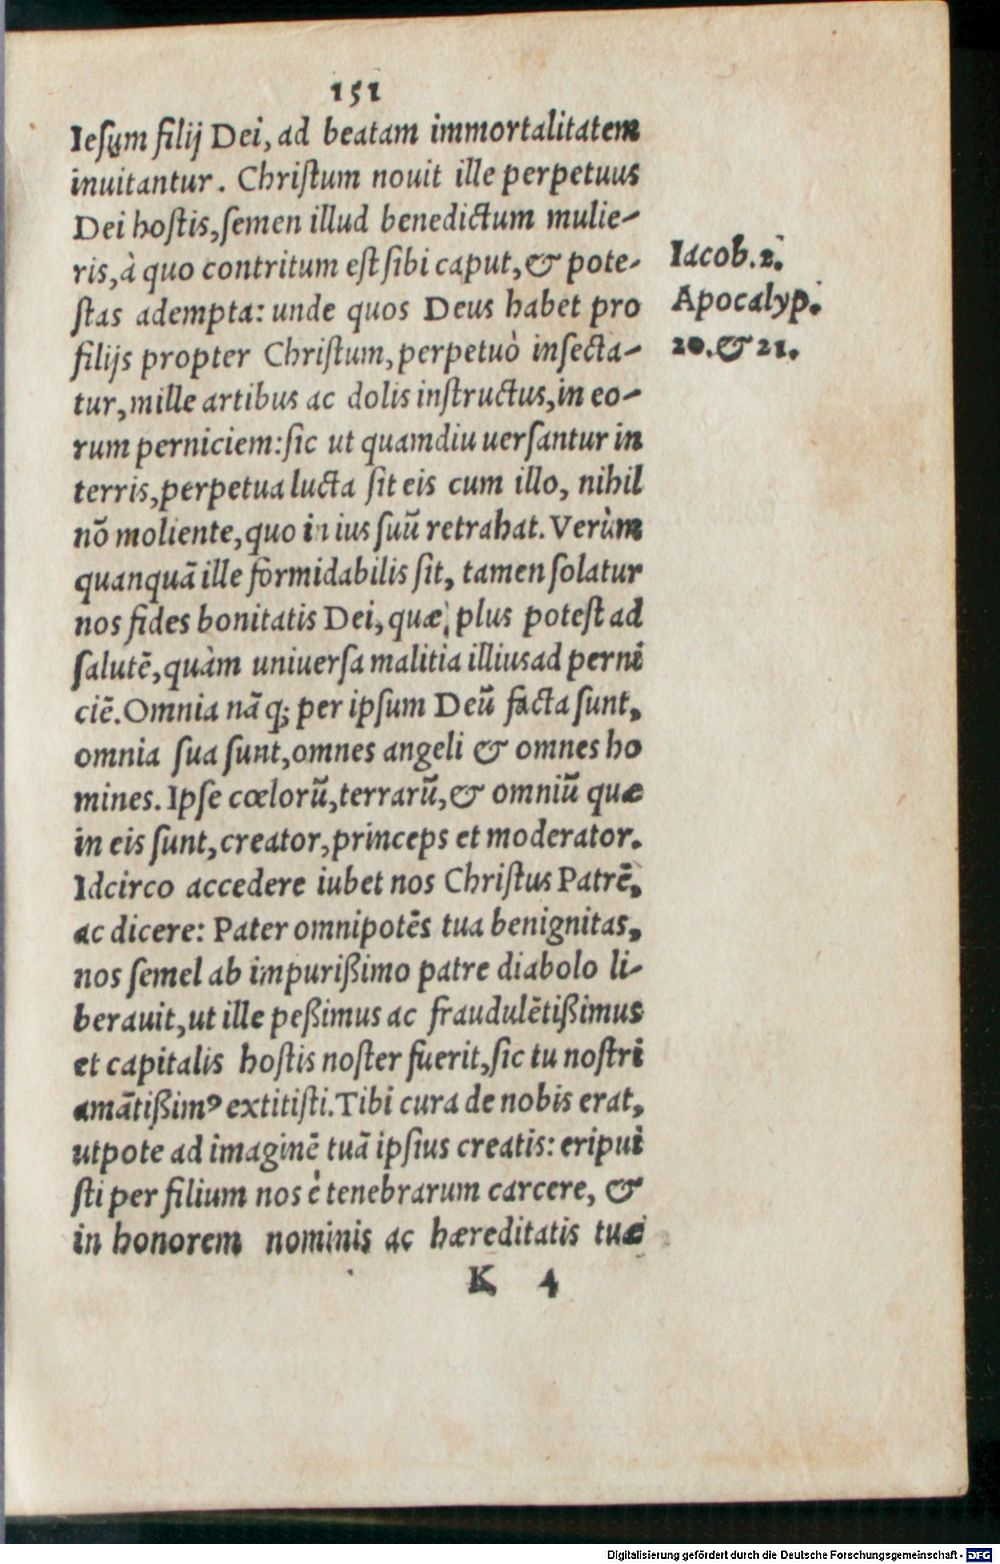 151
Ieſum filij Dei, ad beatam immortalitatem
inuitantur. Chriſtum nouit ille perpetuus
Dei hoſtis, ſemen illud benedictum mulie-
ris, à quo contritum eſt ſibi caput, & pote-
ſtas adempta: unde quos Deus habet pro
filijs propter Chriſtum, perpetuò inſecta-
tur, mille artibus ac dolis inſtructus, in eo-
rum perniciem: ſic ut quamdiu uerſantur in
terris, perpetua lucta ſit eis cum illo, nihil
nō moliente, quo in ius ſuū retrahat. Verùm
quanquā ille formidabilis ſit, tamen ſolatur
nos fides bonitatis Dei, quæ plus poteſt ad
ſalutē, quàm uniuerſa malitia illius ad perni
ciē. Omnia nāq; per ipſum Deū facta ſunt,
omnia ſua ſunt, omnes angeli & omnes ho
mines. Ipſe cœlorū, terrarū, & omniū quæ
in eis ſunt, creator, princeps et moderator.
Idcirco accedere iubet nos Chriſtus Patrē,
ac dicere: Pater omnipotēs tua benignitas,
nos ſemel ab impurißimo patre diabolo li-
berauit, ut ille peßimus ac fraudulētißimus
et capitalis hoſtis noſter fuerit, ſic tu noſtri
amātißimꝰ extitiſti. Tibi cura de nobis erat,
utpote ad imaginē tuā ipſius creatis: eripui
ſti per filium nos è tenebrarum carcere, &
in honorem nominis ac hæreditatis tuæ
K 4
Iacob. 2.
Apocalyp.
20. & 21.
Digitalisierung gefördert durch die Deutsche Forschungsgemeinschaft - DFG